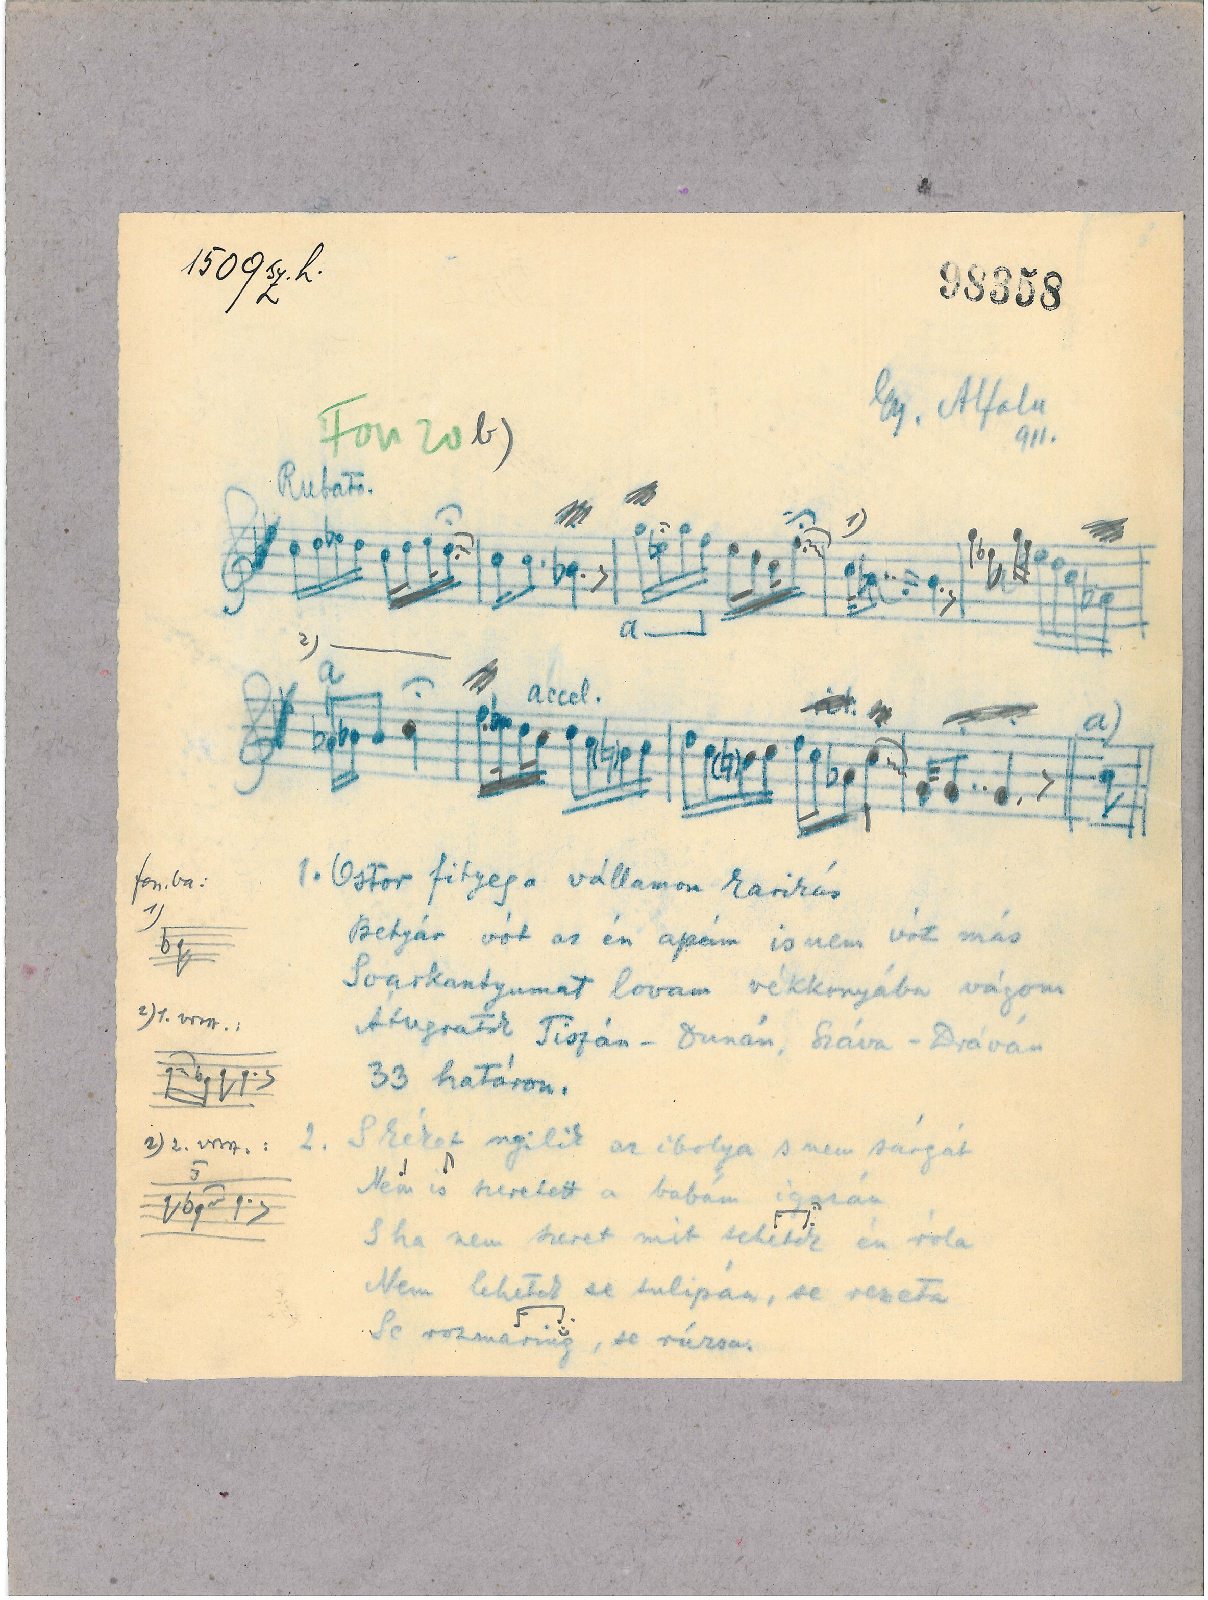 1509 sz. h.
98358
Gy. Alfalu
911.
Fon 20 b)
Rubato.
1)
a
2)
a
accel.
rit.
a)
fon.ba:
1)
2) 1. vers.:
2) 2. vers.:
5
1. Ostor fityeg a vállamon karikás
Betyár vót az én apám is nem vót más
Sarkantyumat lovam vékkonyába vágom
Átugratok Tiszán - Dunán, Száva - Dráván
33 határon.
2. Kéket nyilik az ibolya s nem sárgát
Nem is szeretett a babám igazán
S ha nem szeret mit tehetek én róla
Nem lehetek se tulipán, se rezeta
Se rozmaring, se rúzsa.